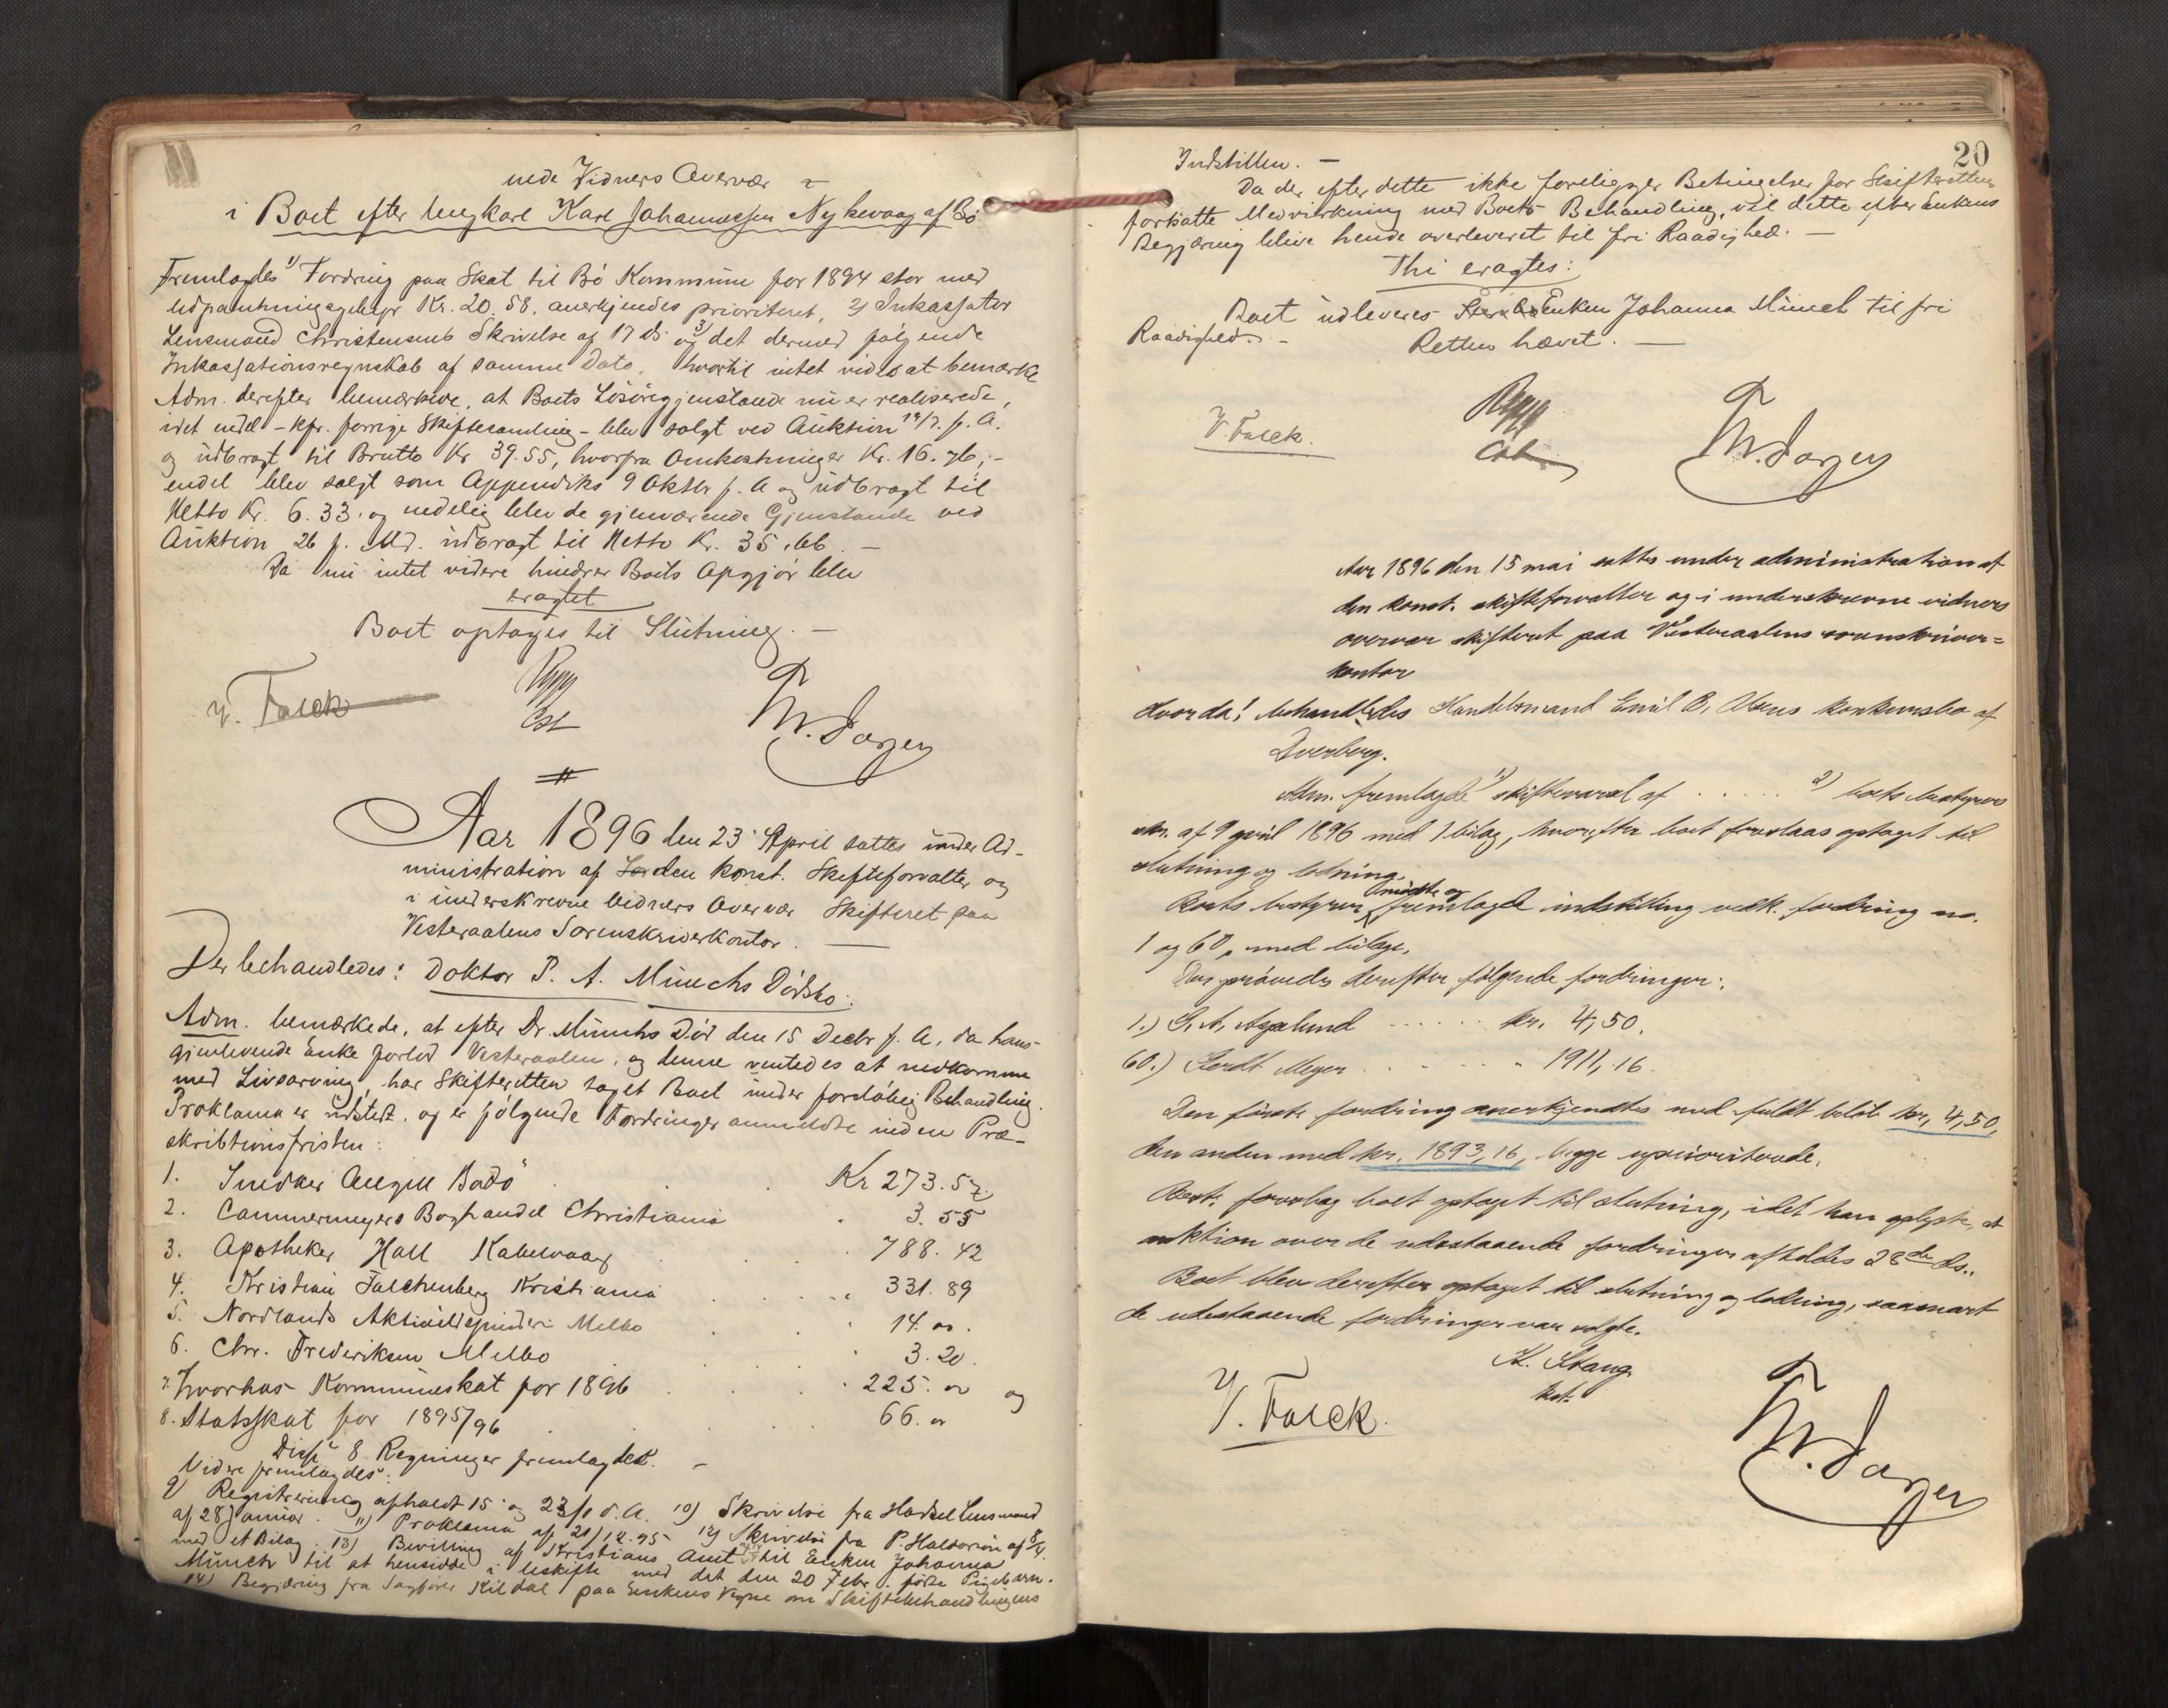 nede Vidners Overvær
i Boet efter Ungkarl Karl Johannessen Nykvaag af Bö
Fremlagdes 1) Fordring paa Skat til Bö Kommune for 1894 stor med
Udpantningsgebyr Kr. 20.58, anerkjendes prioriteret, 2) Inkassator
Lensmand Christensens Skrivelse af 17 ds og 3) det dermed følgende
Inkassationsregnskab af samme Dato, hvortil intet vides at bemærke
Adm. derefter bemærkede, at Boets Lösöregjenstande nu er realiserede,
idet endel - kfr. forrige Skiftesamling - blev solgt ved Auktion 19/7. f. A.
og udbragt til Brutto Kr 39.55, hvorfra Omkostninger Kr. 16.76,-
endel blev solgt som Appendiks 9 Oktbr f. A og udbragt til
Netto Kr. 6.33. og endelig blev de gjenværende Gjenstande ved
Auktion 26 f. Md. udbragt til Netto Kr. 35.66. —
Da nu intet videre hindrer Boets Opgjör blev
eragtet
Boet optages til Slutning. —
V. Falck
Rygg
Cst
M. Dorjer
Aar 1896 den 23 April sattes under Ad-
ministration af den konst. Skifteforvalter og
i underskrevne Vidners Overvær Skifteret paa
Vesteraalens Sorenskriverkontor. —
Der behandledes: Doktor P. A. Münchs Dödsbo.
Adm. bemærkede, at efter Dr Münchs Död den 15 Decbr f. A, da hans
gjenlevende Enke forlod Vesteraalen, og denne ventedes at nedkomme
med Livsarving, har Skifteretten taget Boet under foreløbig Behandling.
Proklama er udstedt. og er følgende Fordringer anmeldte inden Præ-
skriptionsfristen:
1. Snedker Angell Bodö . . Kr 273.57
2. Cammermeyers Boghandel Christiania . 3.55
3. Apotheker Hall Kabelvaag . . 788.42
4. Kristian Falchenberg Kristiania . . . 331.89
5. Nordlands Aktieuldspinderi Melbo . . 14. oo.
6. Chr. Frederiksen Melbo . . . 3.20.
7. Kommuneskat for 1896 . . . 225. oo og
8. Statsskat for 1895/96 . . . 66. oo
Disse 8 Regninger fremlagdes. —
Videre fremlagdes:
9) Registrering afholdt 15 og 23/1 d. A. 10) Skrivelse fra Hadsel Lensmand
af 28 Januar. 11) Proklama af 21/12.95 12) Skrivelse fra P. Haldorsen af 8/4.
med et Bilag. 13) Bevilling af Kristians Amt til Enken Johanna
Münch til at hensidde i Uskifte med det den 20 Febr. födte Pigebarn.
14) Begjæring fra Sagförer Kildal paa Enkens Vegne om Skiftebehandlingens
20
Indstillen. —
Da der efter dette ikke foreligger Betingelser for Skifterettens
fortsatte Medvirkning med Boets Behandling, vil dette efter Enkens
Begjæring blive hende overleveret til fri Raadighed. —
Thi eragtes:
Boet udleveres Enken Johanna Münch til fri
Raadighed. -
Retten hævet. —
V. Falck.
Rygg
Cst
M. Dorjer
Aar 1896 den 15 mai sattes under administration af
den konst. skifteforvalter og i underskrevne vidners
overvær skifteret paa Vesteraalens sorenskriver=
kontor
Hvor da: behandledes Handelsmand Emil B. Olsens konkursbo af
Dverberg.
Adm. fremlagde 1) skiftevarsel af . . . . . 2) boets bestyrers
skr. af 9 april 1896 med 1 bilag, hvorefter boet foreslaas optaget til
slutning og lodning.
Boets bestyrer mødte og fremlagde indstilling vedk. fordring no.
1 og 60, med bilage.
Der prövedes derefter fölgende fordringer:
1.) G. A. Aspelund . . . . . . kr. 4,50.
60.) Gerdt Meyer . . . . . . . . " 1911,16.
Den förste fordring anerkjendtes med fuldt belöb kr. 4,50,
den anden med kr. 1893,16, begge uprioriterede.
Best. foreslog boet optaget til slutning, idet han oplyste, at
auktion over de udestaaende fordringer afholdes 28de ds..
Boet blev derefter optaget til slutning og lodning, saasnart
de udestaaende fordringer var solgte.
K. Stang
kst.
V. Falck.
M. Dorjer